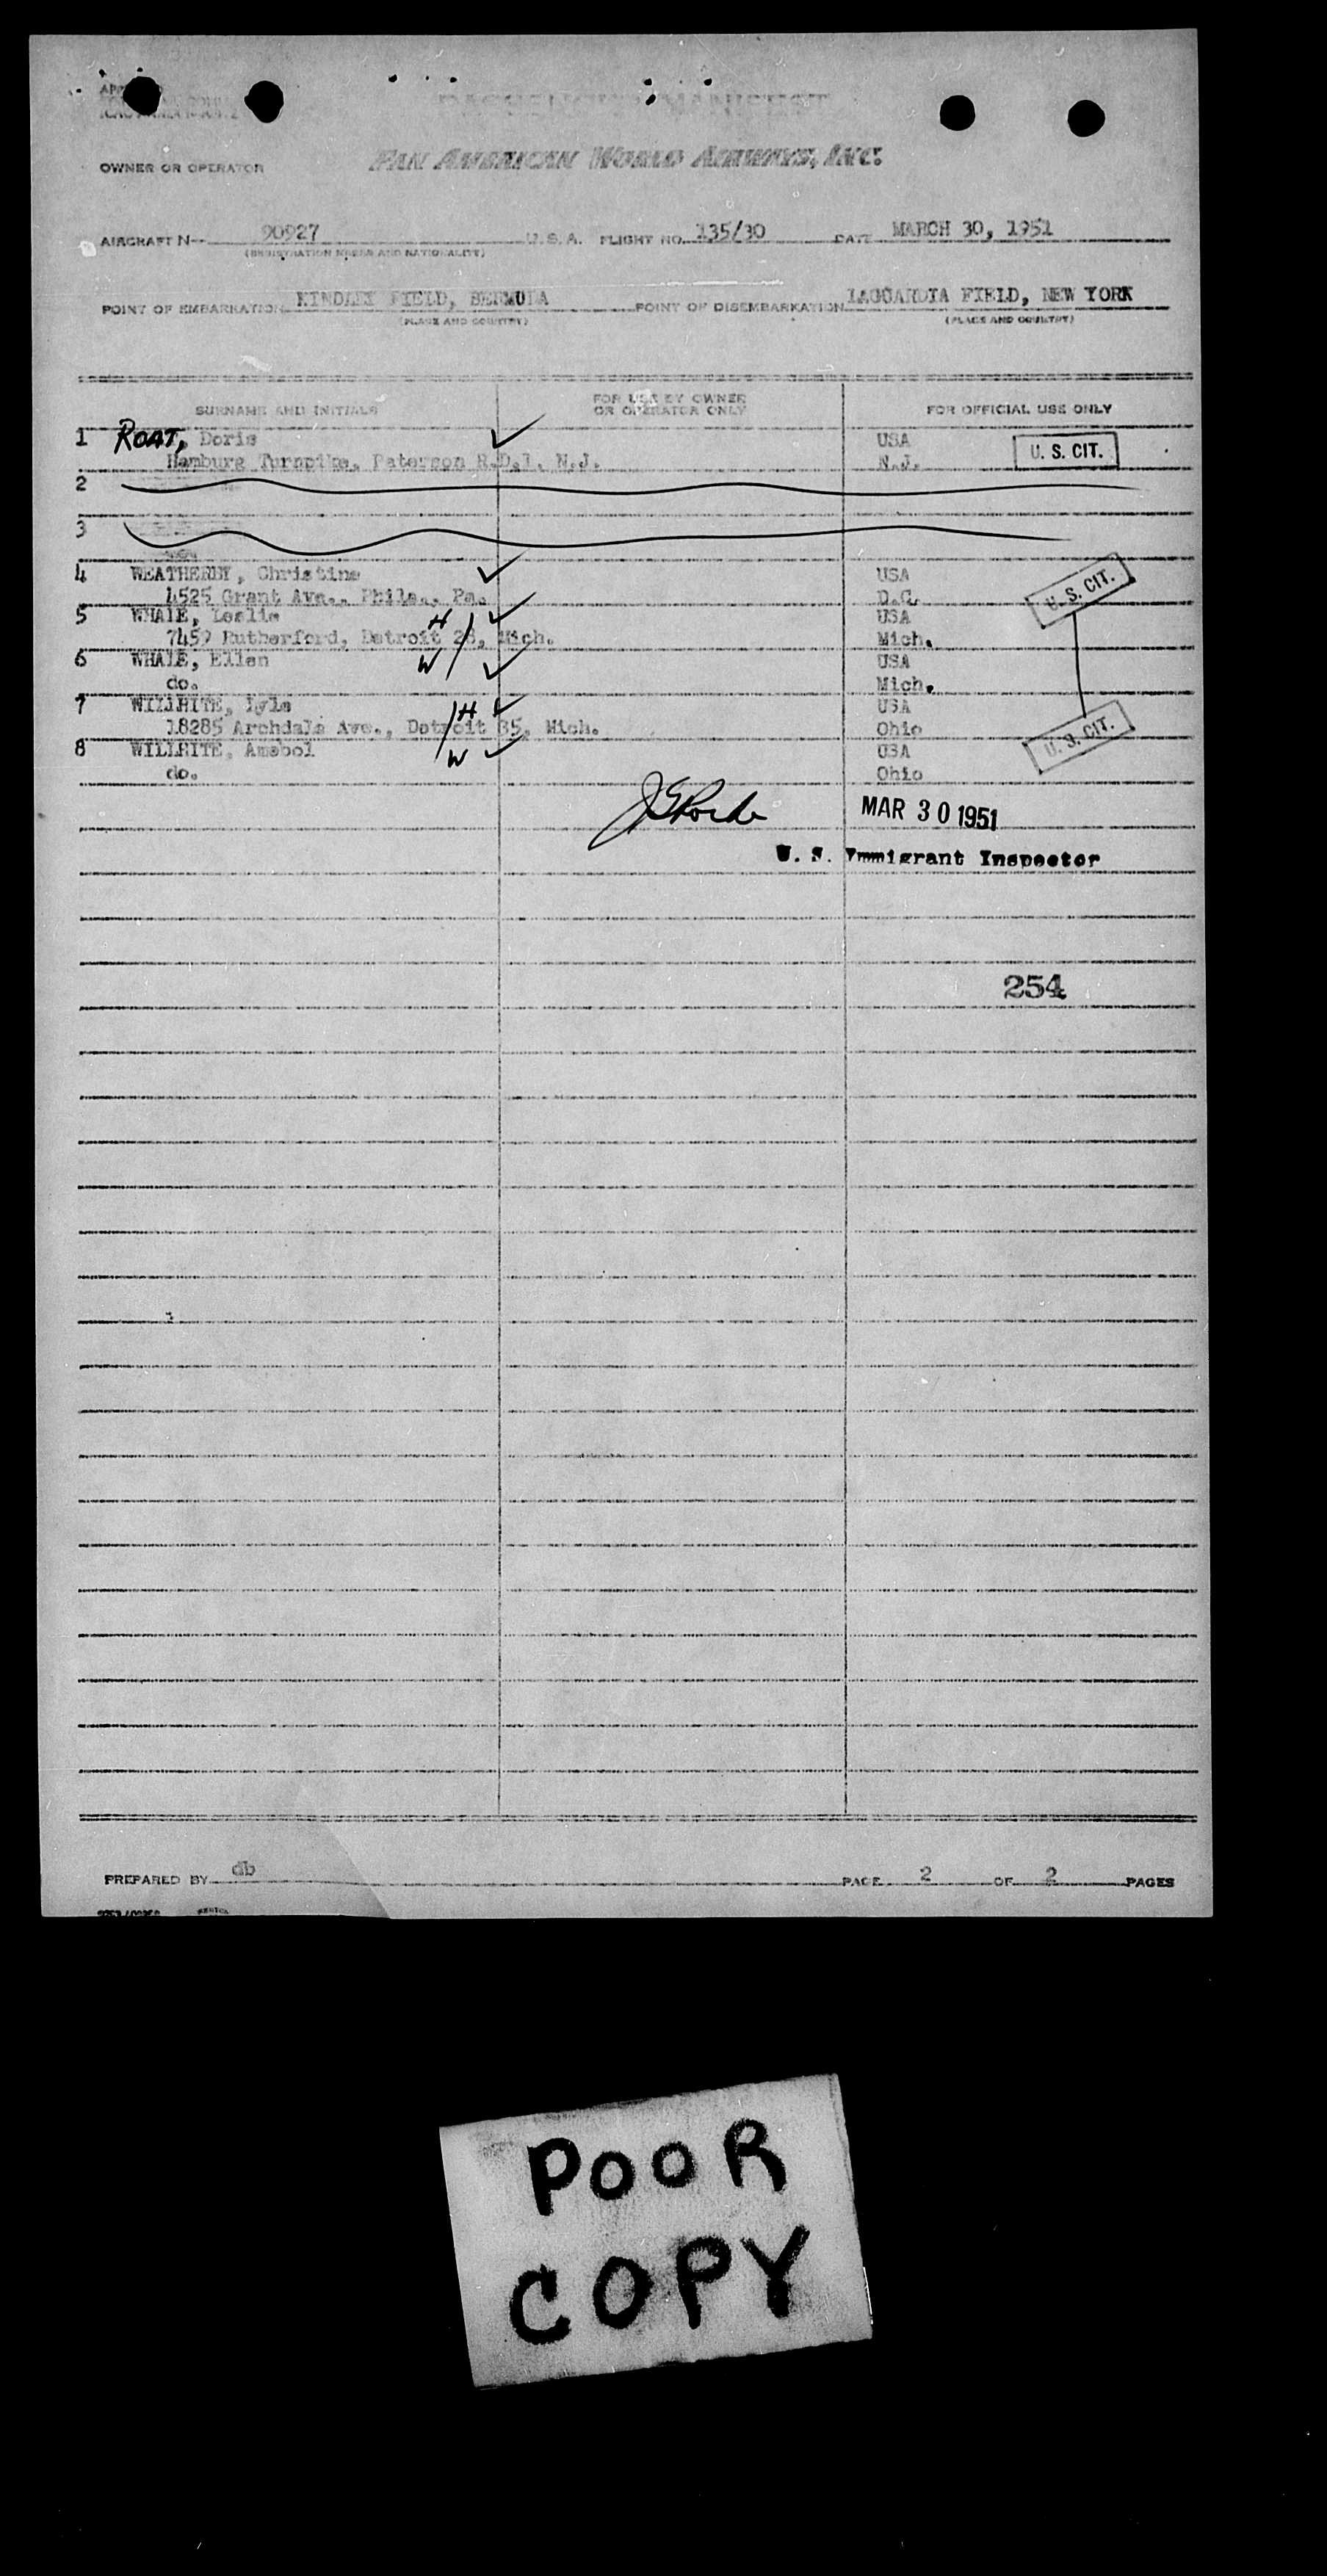 PASSENGER MANIFEST
OWNER OR OPERATOR PAN AMERICAN WORLD AIRWAYS, INC.
AIRCRAFT N-- 90927 U. S. A. FLIGHT NO. 135/30 DATE MARCH 30, 1951
(REGISTRATION MARKS AND NATIONALITY)
POINT OF EMBARKATION KINDLEY FIELD, BERMUDA POINT OF DISEMBARKATION LAGUARDIA FIELD, NEW YORK
(PLACE AND COUNTRY) (PLACE AND COUNTRY)
SURNAME AND INITIALS FOR USE BY OWNER OR OPERATOR ONLY FOR OFFICIAL USE ONLY
1 ROAT, Doris ✓ USA U. S. CIT.
Hamburg Turnpike, Paterson R.D.1, N.J. N.J.
2
3
4 WEATHERBY, Christine ✓ USA U. S. CIT.
4525 Grant Ave., Phila., Pa. D.C.
5 WHALE, Leslie H ✓ USA
7459 Rutherford, Detroit 28, Mich. Mich.
6 WHALE, Ellen W ✓ USA
do. Mich.
7 WILLHITE, Lyle H ✓ USA
18285 Archdale Ave., Detroit 35, Mich. Ohio U. S. CIT.
8 WILLHITE, Amabol W ✓ USA
do. Ohio
MAR 30 1951
U. S. Immigrant Inspector
254
PREPARED BY db PAGE 2 OF 2 PAGES
POOR
COPY